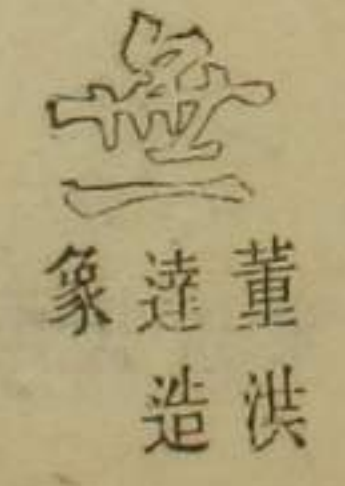 董洪
達造
象